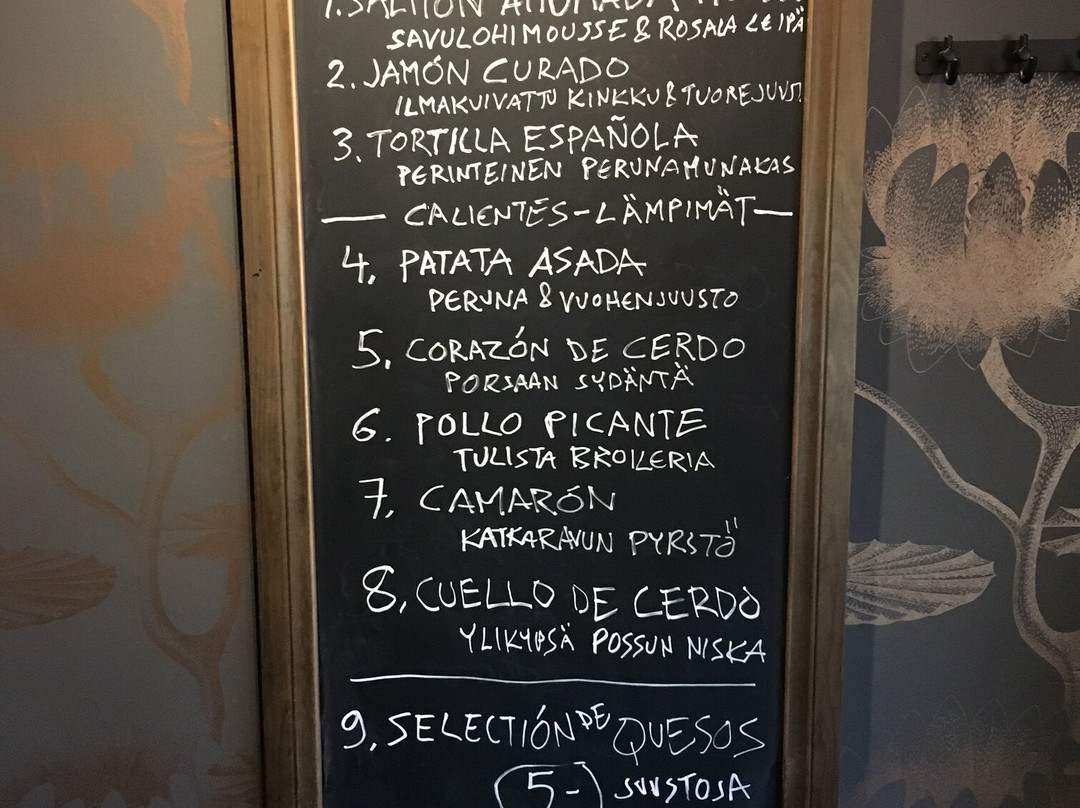 1. SALMÓN AHUMADA
SAVULOHIMOUSSE & ROSALA LEIPÄ
2. JAMÓN CURADO
ILMAKUIVATTU KINKKU & TUOREJUUST
3. TORTILLA ESPAÑOLA
PERINTEINEN PERUNAMUNAKAS
— CALIENTES - LÄMPIMÄT —
4. PATATA ASADA
PERUNA & VUOHENJUUSTO
5. CORAZÓN DE CERDO
PORSAAN SYDÄNTÄ
6. POLLO PICANTE
TULISTA BROILERIA
7. CAMARÓN
KATKARAVUN PYRSTÖ
8. CUELLO DE CERDO
YLIKYPSÄ POSSUN NISKA
9. SELECTIÓN DE QUESOS
5- JUUSTOJA